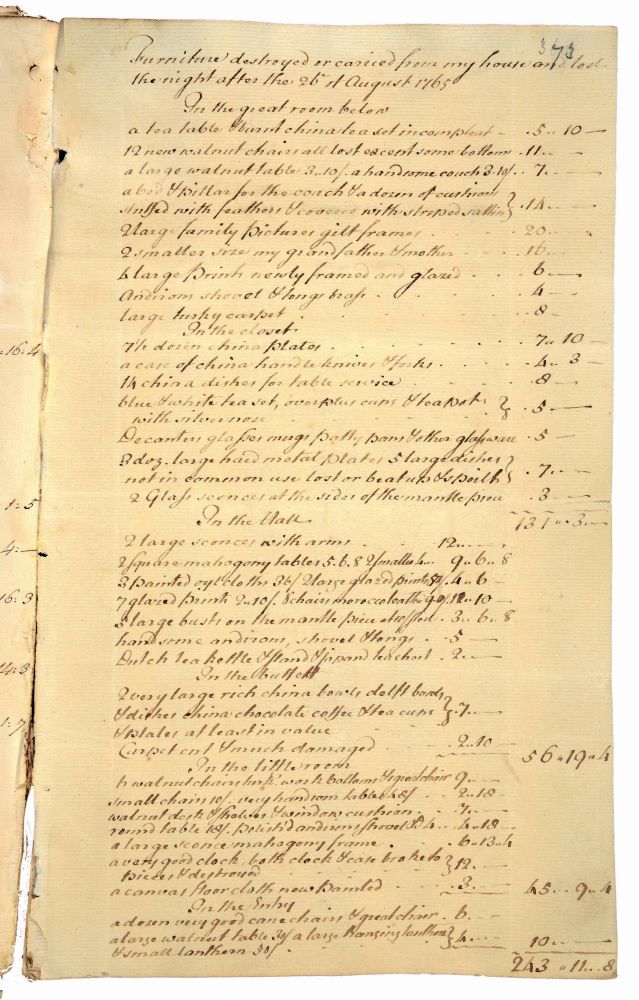 373
Furniture destroyed or carried from my house and lost
the night after the 26th of August 1765
In the great room below
a tea table & burnt china tea set incompleat - 5 .. 10 —
12 new walnut chairs all lost except some bottoms 11 .. —
a large walnut table 3..10/. a handsome couch 3.10/ 7 .. —
a bed & pillar for the couch & a dozen of cushions
stuffed with feathers & covered with striped sattin } 14 .. —
2 large family pictures gilt frames - 20 .. —
2 smaller size my grandfather & mother - 16 —
6 large prints newly framed and glazed - 6 —
Andirons shovel & tongs brass - 4 —
large turky carpet - 8 —
In the closet
7½ dozen china plates - 7 .. 10 —
a case of china handle knives & forks - 4 .. 3 —
14 china dishes for table service - 8 —
blue & white tea set, overplus cups & teapot
with silver nose } 5 —
Decanters glasses mugs patty pans & other glass ware 5 —
3 doz. large hard metal plates 5 large dishes
not in common use lost or beat up & spoilt } 7 .. —
2 Glass sconces at the sides of the mantle piece 3 .. —
131 .. 3 —
In the Hall
2 large sconces with arms - 12 .. —
2 square mahogony tables 5.6.8 2 smaller 4.. 9 .. 6 .. 8
3 painted oyl cloths 36/ 2 large glazed prints 50/. 4 .. 6 —
7 glazed prints 2..10/. 8 chairs morocco leather 12 .. 10 —
5 large busts on the mantle piece 3 .. 6 .. 8
handsome andirons, shovel & tongs - 5 —
Dutch tea kettle & stand & japand tea chest - 2 .. —
In the buffett
2 very large rich china bowls delft bowls
& dishes china chocolate coffee & tea cups
& plates at least in value } 7 .. —
Carpet cut & much damaged - 2 .. 10 —
56 .. 19 .. 4
In the little room
6 walnut chairs turk: work bottoms & great chair 9 —
small chairs 10/. very handsom table 48/ - 2 .. 18
walnut desk & shelves & window cushion - 7 —
round table 18/. polish'd andirons shovel &c 4.. 4 .. 18 —
a large sconce mahogony frame - 6 .. 13 .. 4
a very good clock, both clock & case broke to
pieces & destroyed } 12 —
a canvas floor cloth new painted - 3 —
45 .. 9 .. 4
In the Entry
a dozen very good cane chairs & great chair - 6 —
a large walnut table 30/ a large hanging lanthorn
& small lanthern 50/. } 4 .. —
10 .. —
243 .. 11 .. 8
16 : 4
1 : 5
4 : —
16 : 3
14 : 3
1 : 7